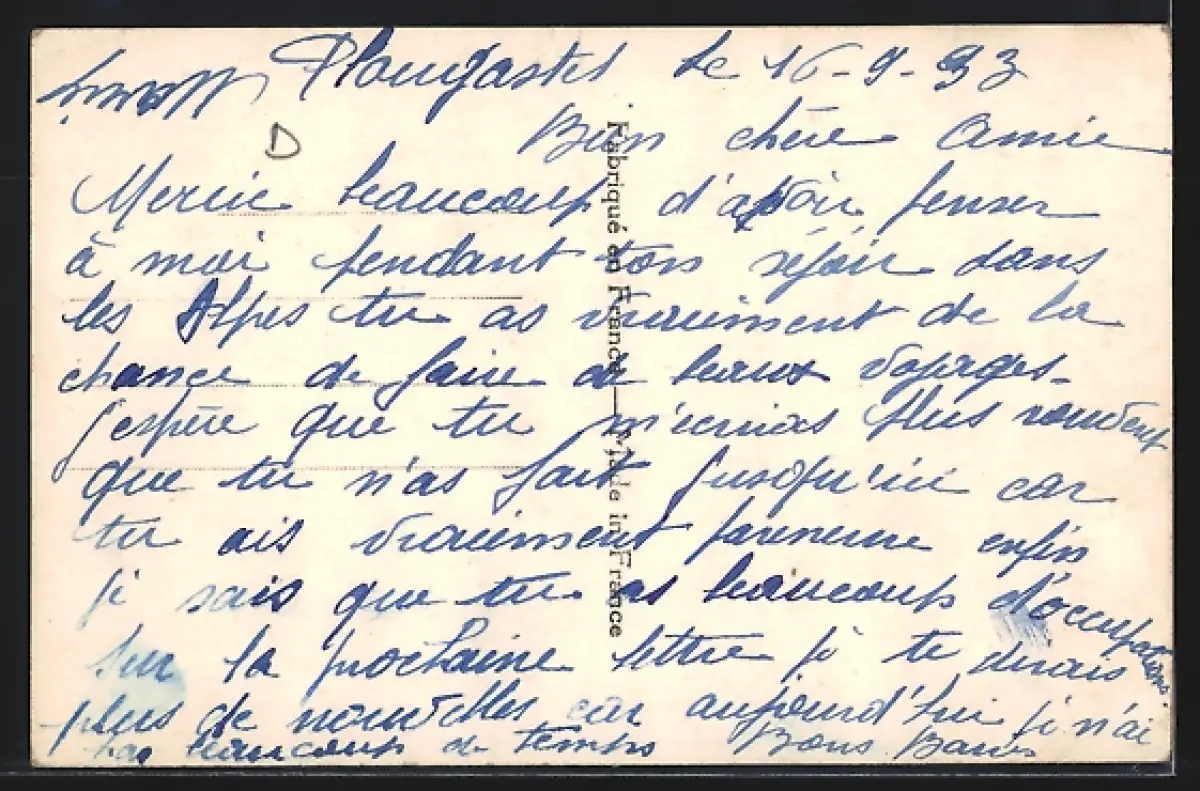 Plougastel le 16-9-33
Bien chère Amie
Mercie beaucoup d'avoir penser
à moi pendant ton séjoir dans
les Alpes tu as vraiement de la
chance de faire de beaux voyages.
J'espère que tu m'ecriras plus souvent
que tu n'as fait jusqu'ici car
tu ais vraiement paresseuse enfin
je sais que tu as beaucoup d'occupations
Sur la prochaine lettre je te dirais
plus de nouvelles car aujourd'hui je n'ai
pas beaucoup de temps Bons Baisers
D
Fabriqué en France — Made in France